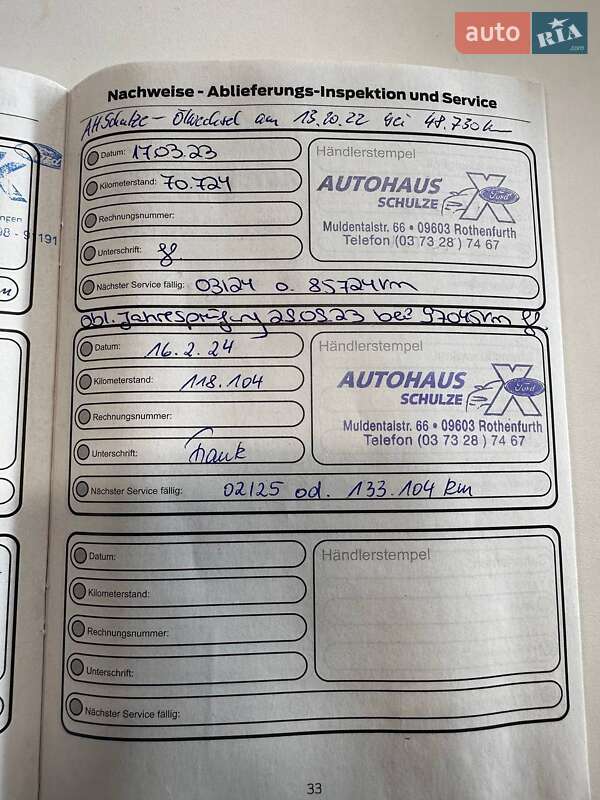 auto RIA.com
Nachweise - Ablieferungs-Inspektion und Service
AH Schulze - Ölwechsel am 13.10.22 bei 48.730 k
Datum: 17.03.23
Kilometerstand: 70.724
Rechnungsnummer:
Unterschrift:
Händlerstempel
AUTOHAUS
SCHULZE
Ford
Muldentalstr. 66 • 09603 Rothenfurth
Telefon (03 73 28) 74 67
Nächster Service fällig: 03/24 o. 85724km
abl. Jahresprüfung 29.09.23 bei 97045km
Datum: 16.2.24
Kilometerstand: 118.104
Rechnungsnummer:
Unterschrift: Frank
Händlerstempel
AUTOHAUS
SCHULZE
Ford
Muldentalstr. 66 • 09603 Rothenfurth
Telefon (03 73 28) 74 67
Nächster Service fällig: 02/25 od. 133.104 km
Datum:
Kilometerstand:
Rechnungsnummer:
Unterschrift:
Händlerstempel
Nächster Service fällig:
33
Ford
ngen
98 - 91191